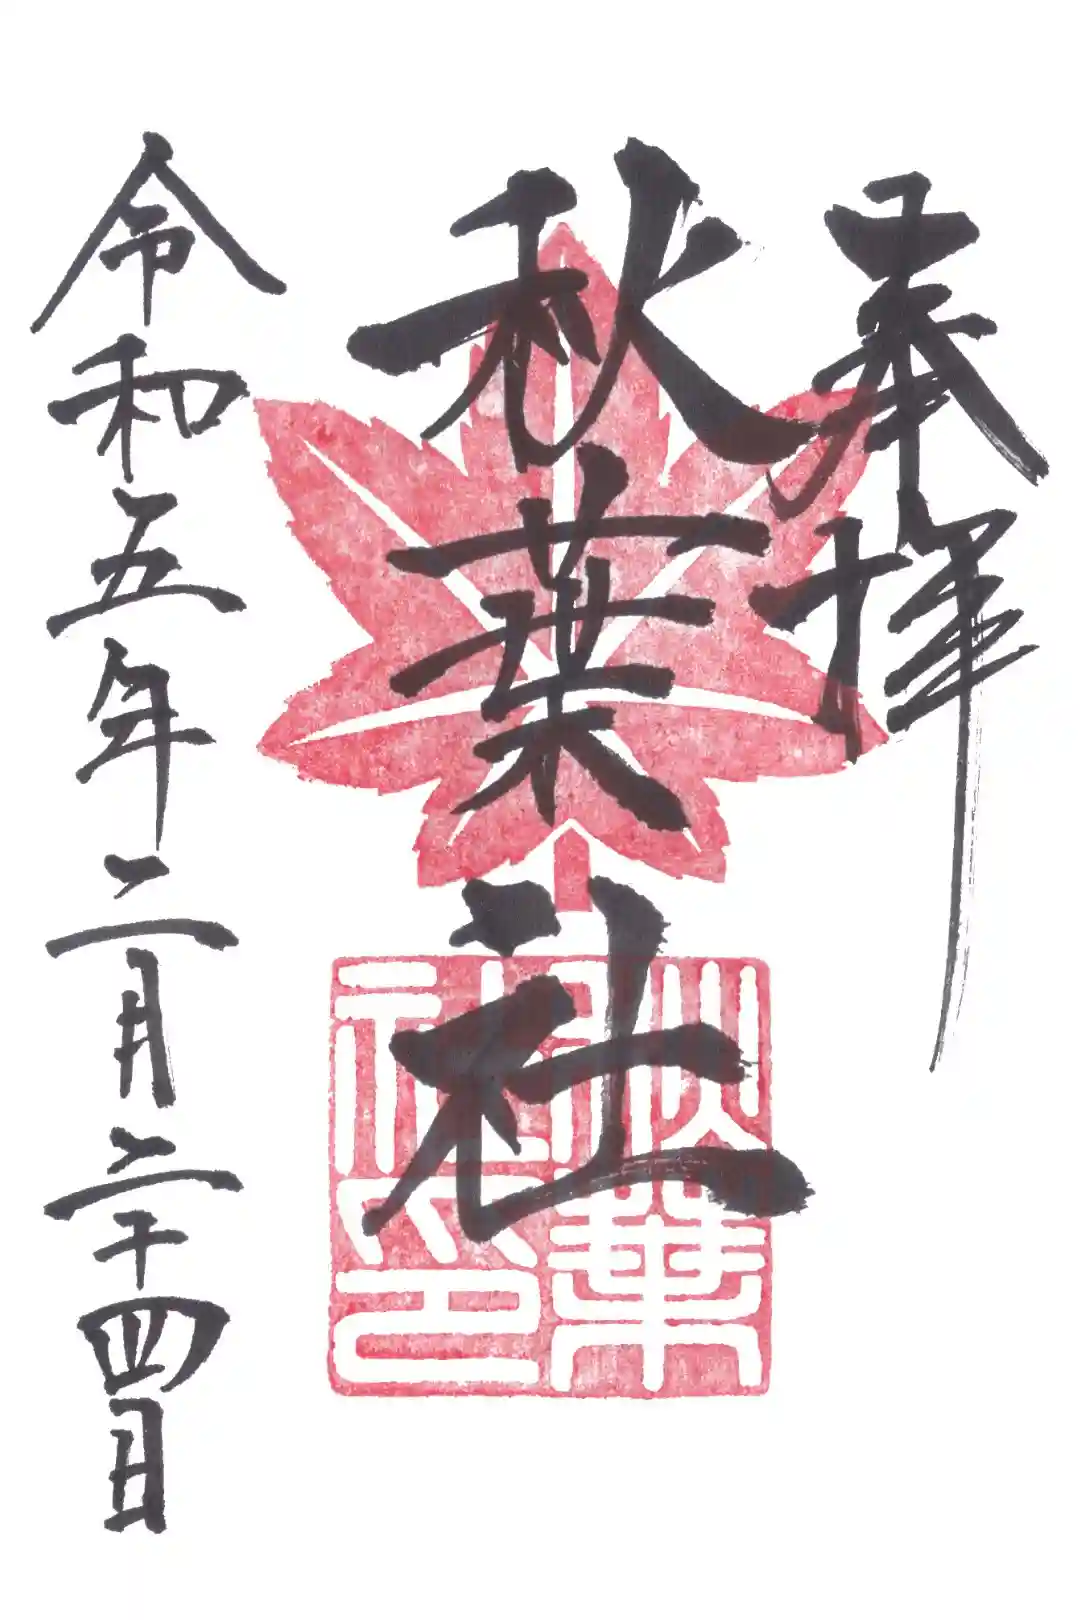 奉拝
秋葉社
秋葉
社印
令和五年二月二十四日